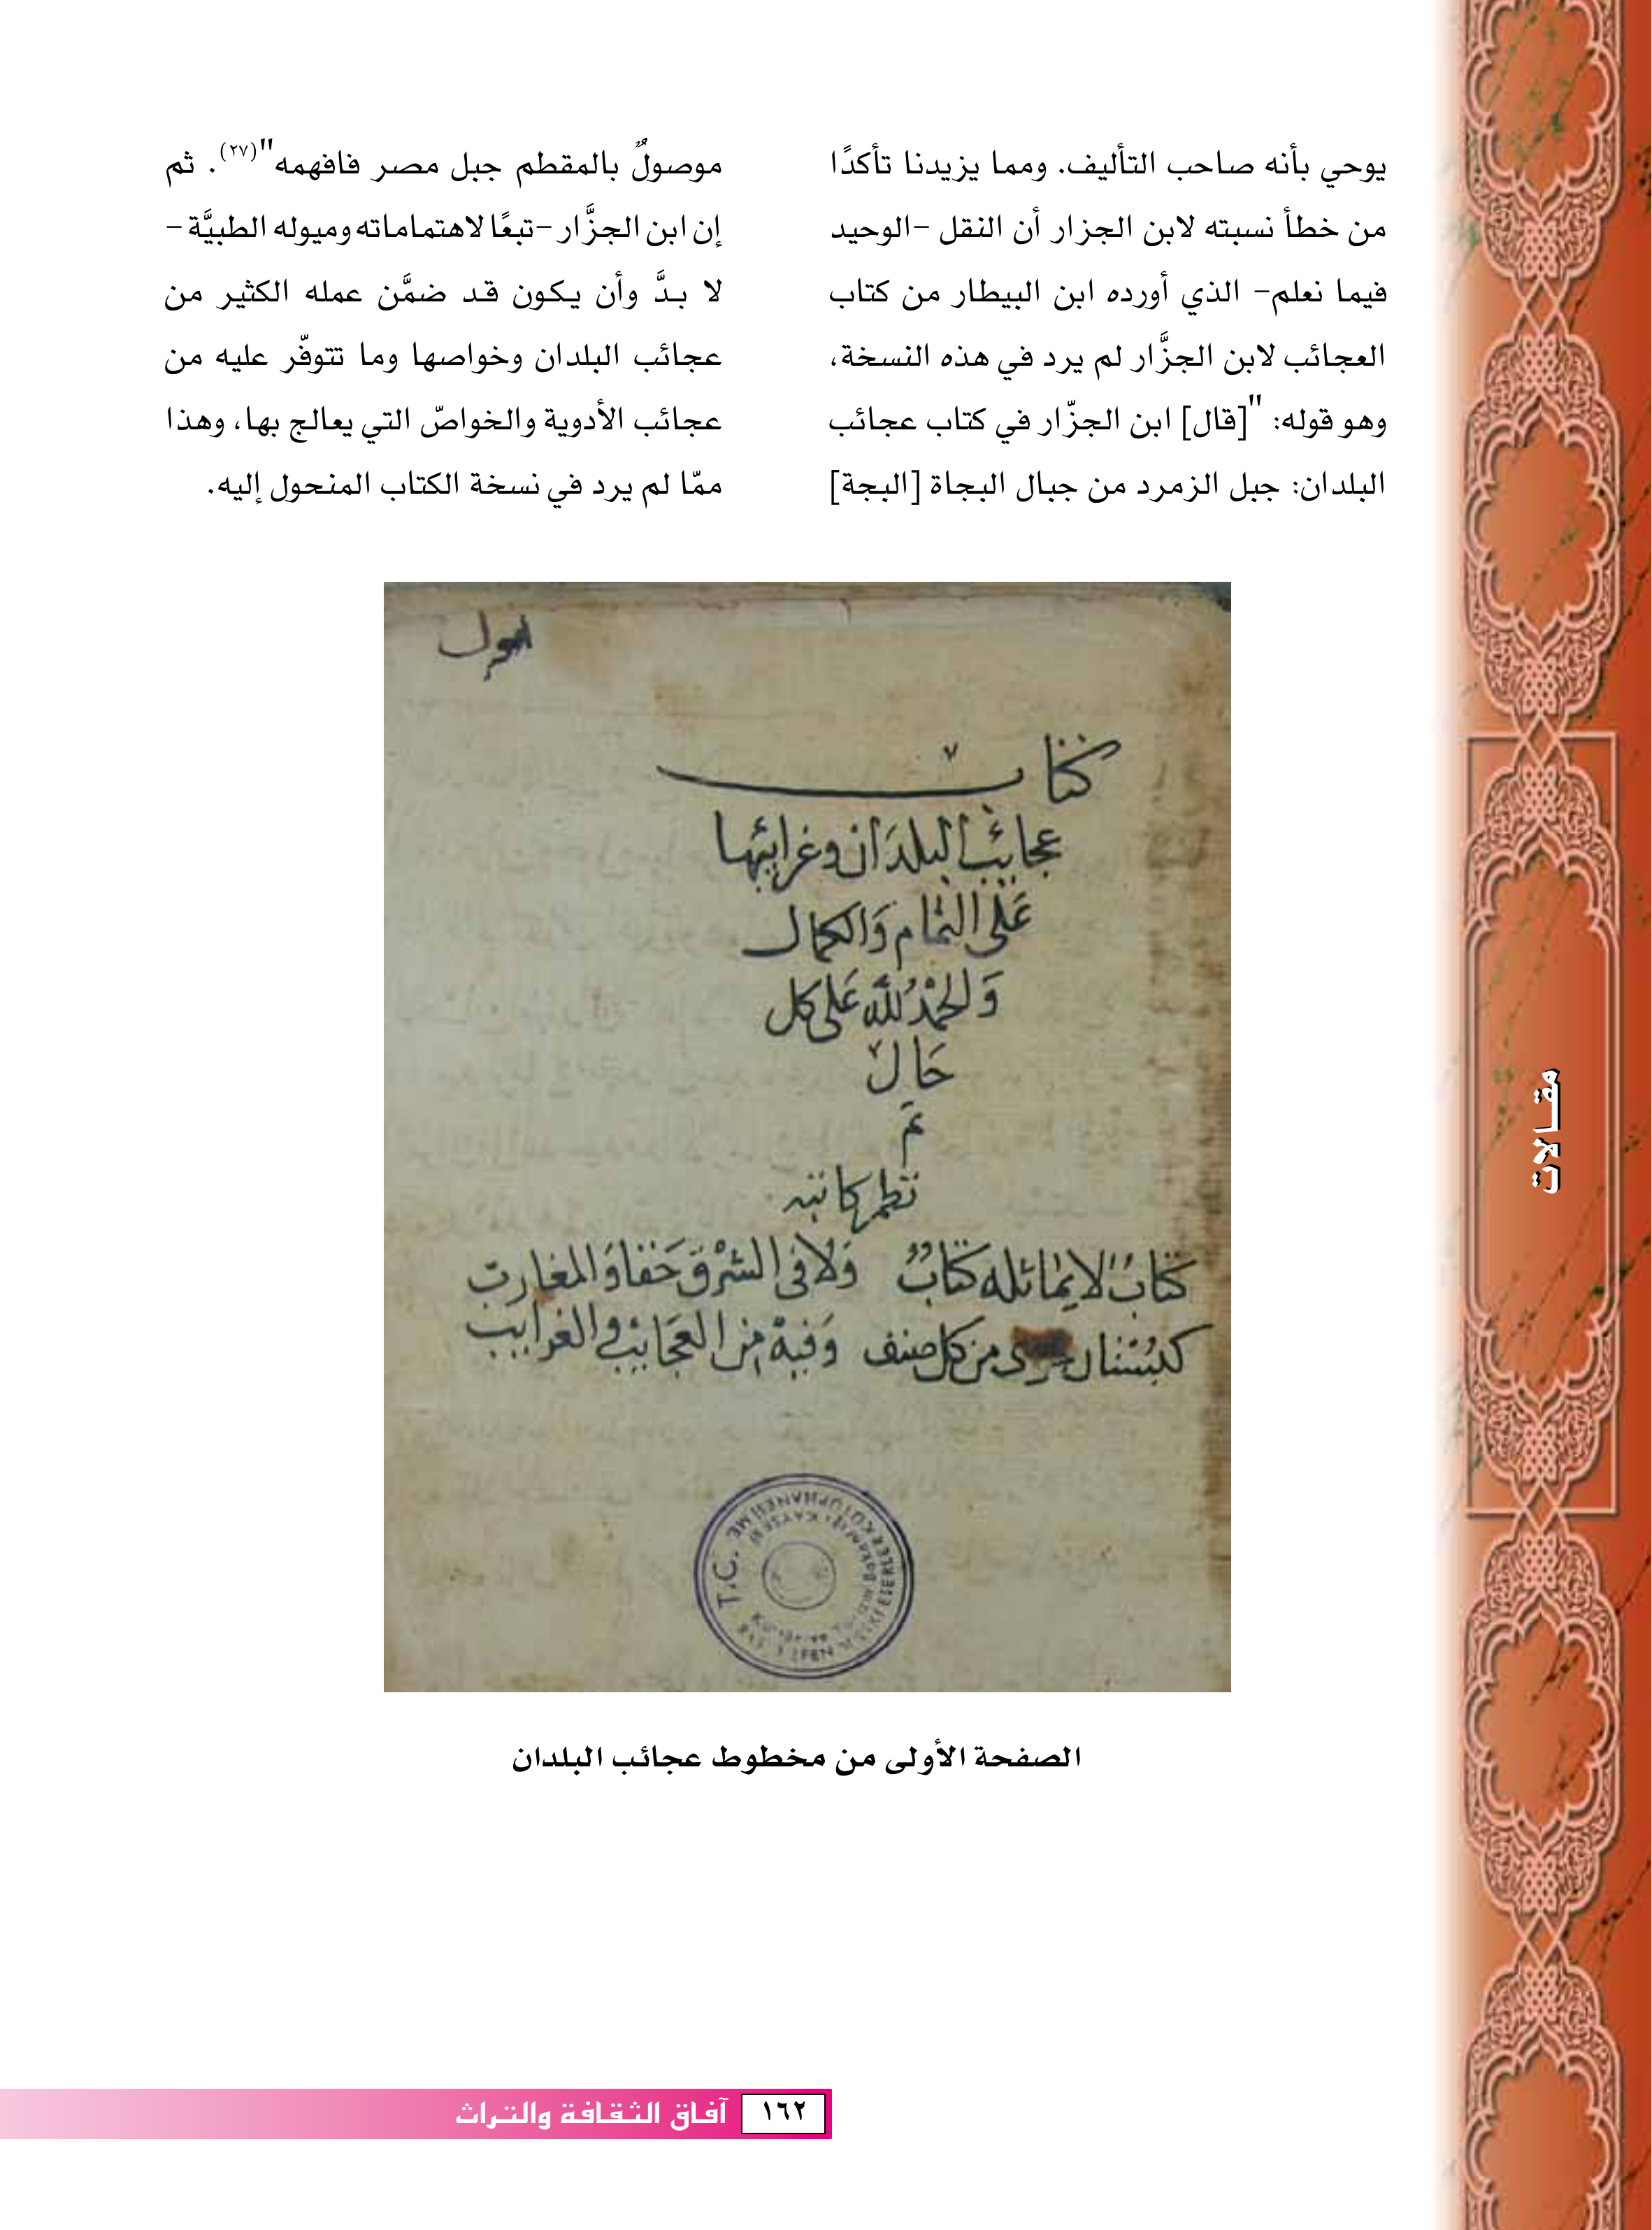 يوحي بأنه صاحب التأليف. ومما يزيدنا تأكدًا
من خطأ نسبته لابن الجزار أن النقل -الوحيد
فيما نعلم- الذي أورده ابن البيطار من كتاب
العجائب لابن الجزَّار لم يرد في هذه النسخة،
وهو قوله: "[قال] ابن الجزّار في كتاب عجائب
البلدان: جبل الزمرد من جبال البجاة [البجة]
موصولٌ بالمقطم جبل مصر فافهمه"(٢٧). ثم
إن ابن الجزَّار -تبعًا لاهتماماته وميوله الطبيَّة-
لا بدَّ وأن يكون قد ضمَّن عمله الكثير من
عجائب البلدان وخواصها وما تتوفّر عليه من
عجائب الأدوية والخواصّ التي يعالج بها، وهذا
ممّا لم يرد في نسخة الكتاب المنحول إليه.
كتاب
عجائب البلدان وغرايبها
عَلى التمام وَالكمال
وَالحمْدُ لله عَلى كل
حَال
تم
كتابٌ لا يماثله كتابٌ وَلا في الشرْق حَقا وَالمغارب
كبُسْتان من كل صنف وَفيهْ من العجَايب والغرايب
T.C.
الصفحة الأولى من مخطوط عجائب البلدان
مقـالات
١٦٢ آفـاق الثـقـافـة والتـراث